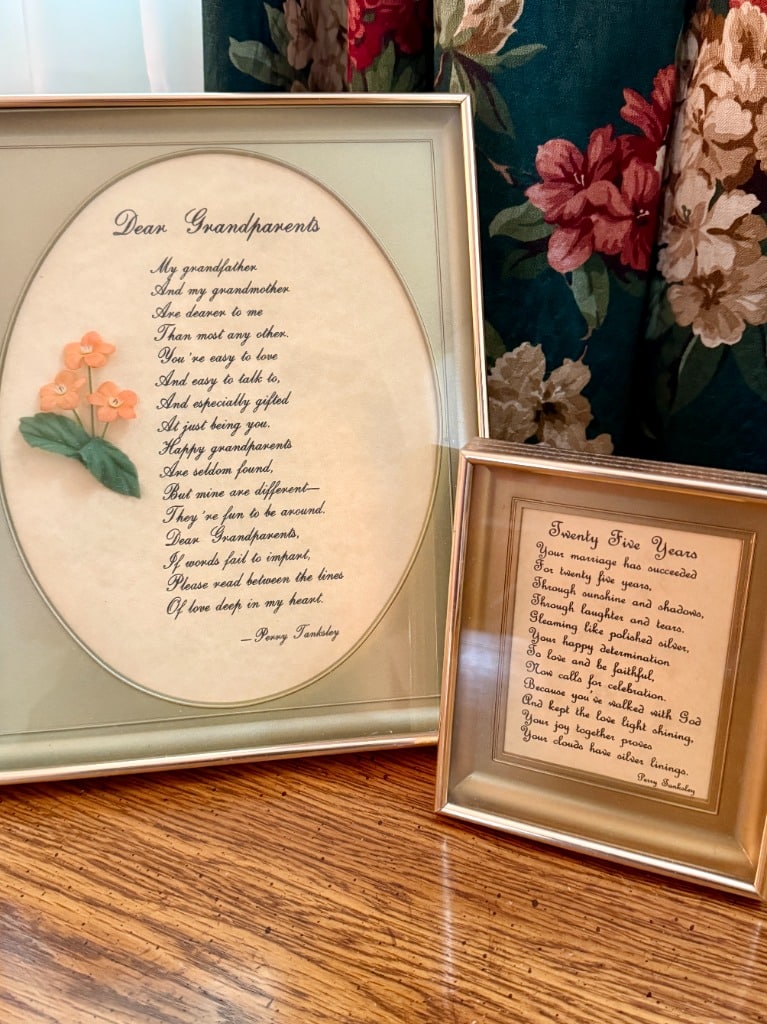 Dear Grandparents
My grandfather
And my grandmother
Are dearer to me
Than most any other.
You're easy to love
And easy to talk to,
And especially gifted
At just being you.
Happy grandparents
Are seldom found,
But mine are different—
They're fun to be around.
Dear Grandparents,
If words fail to impart,
Please read between the lines
Of love deep in my heart.
—Perry Tanksley
Twenty Five Years
Your marriage has succeeded
For twenty five years,
Through sunshine and shadows,
Through laughter and tears.
Gleaming like polished silver,
Your happy determination
To love and be faithful,
Now calls for celebration.
Because you've walked with God
And kept the love light shining,
Your joy together proves
Your clouds have silver linings.
Perry Tanksley